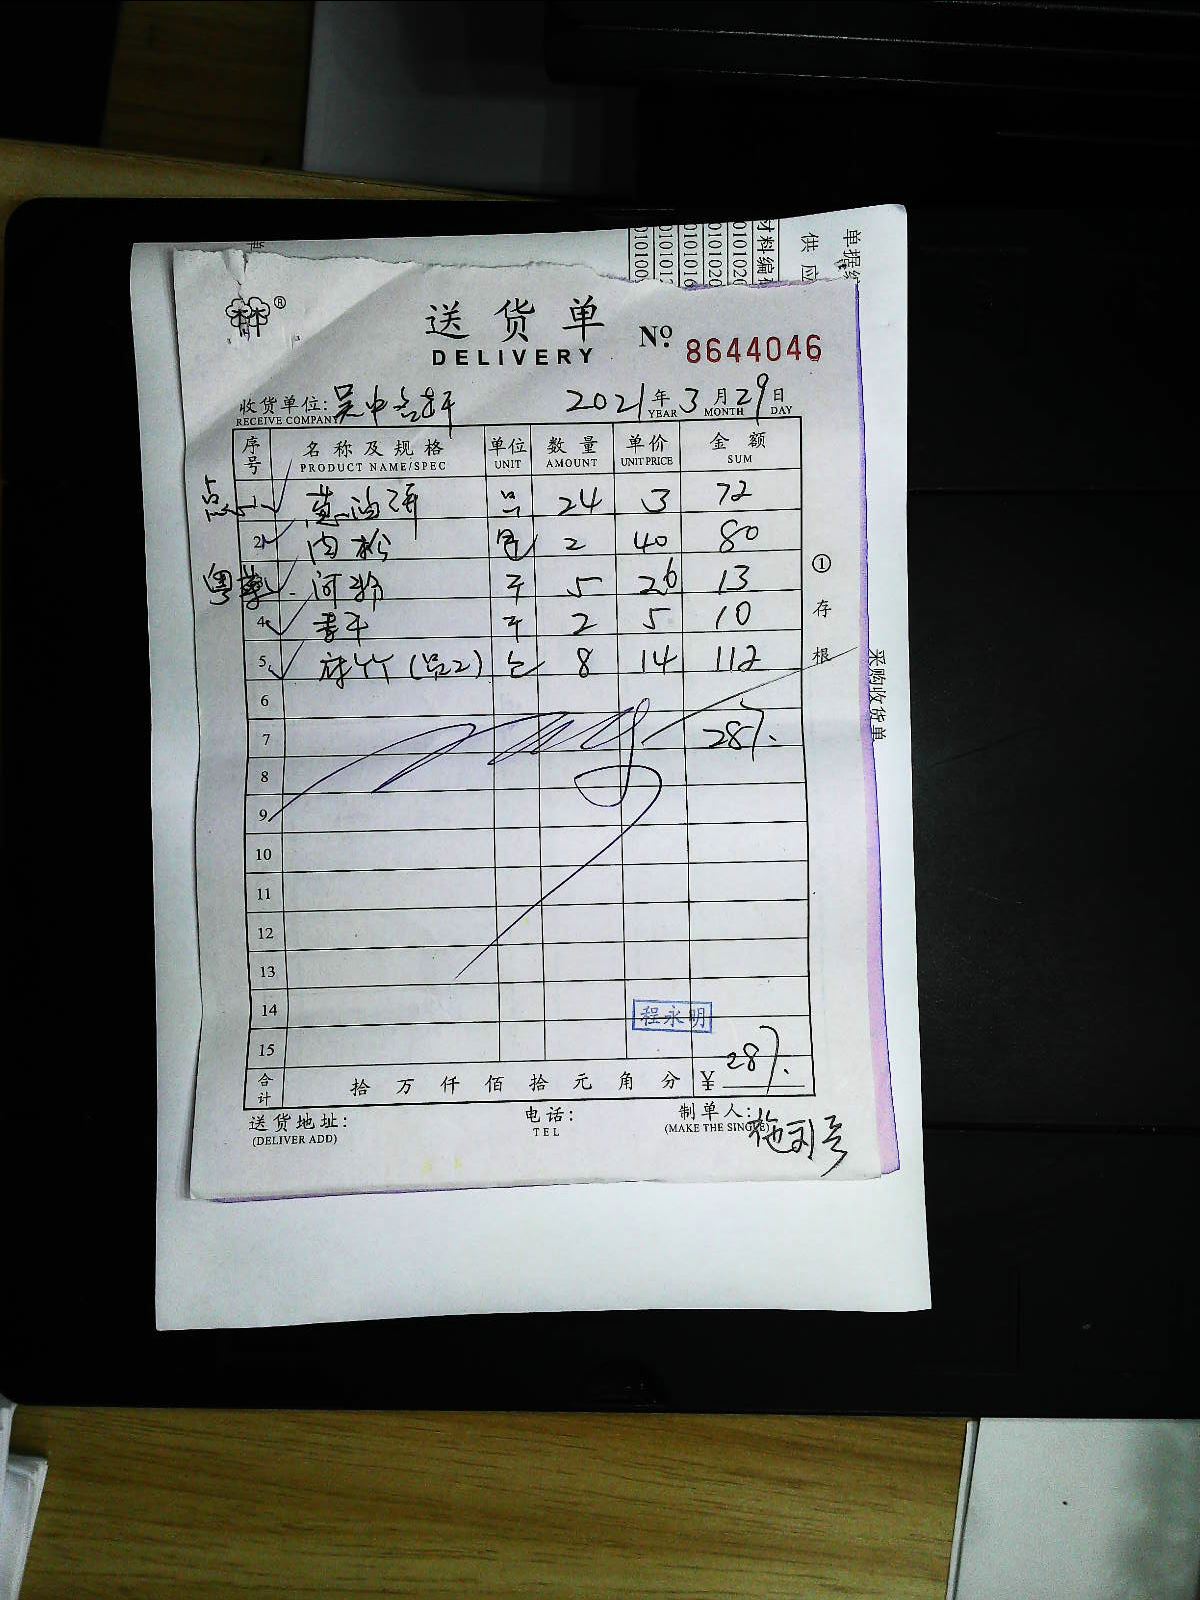 单据
供应
材料编
0101020
0101020
0101016
010101
010100
林林 ®
送货单
DELIVERY
No. 8644046
收货单位: 吴中 2021年3月29日
RECEIVE COMPANY YEAR MONTH DAY
序号 名称及规格 单位 数量 单价 金额
PRODUCT NAME/SPEC UNIT AMOUNT UNIT PRICE SUM
点心 1 葱油饼 24 3 72
2 肉松 包 2 40 80
粤菜 河粉 斤 5 26 13
4 香干 斤 2 5 10
5 8 14 112
6
7 287.
8
9
10
11
12
13
14
15
程永明
合计 拾 万 仟 佰 拾 元 角 分 ¥ 287.
送货地址: 电话: 制单人:
(DELIVER ADD) TEL (MAKE THE SINGLE)
①存根
采购收货单